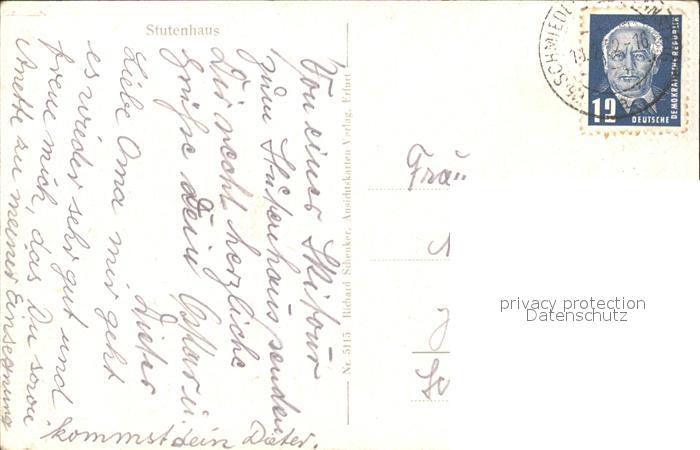 Stutenhaus
Von einer Skitour
zum Stutenhaus senden
Dir recht herzliche
Grüße dein Opa
Dieter
Liebe Oma mir geht
es wieder sehr gut und
freue mich, das Du
Anette zu meiner Einsegnung
kommst. dein Dieter.
Nr. 5115 Richard Schenker, Ansichtskarten-Verlag, Erfurt
SCHMIEDE
-16
12
DEUTSCHE
DEMOKRATISCHE REPUBLIK
Frau
privacy protection
Datenschutz